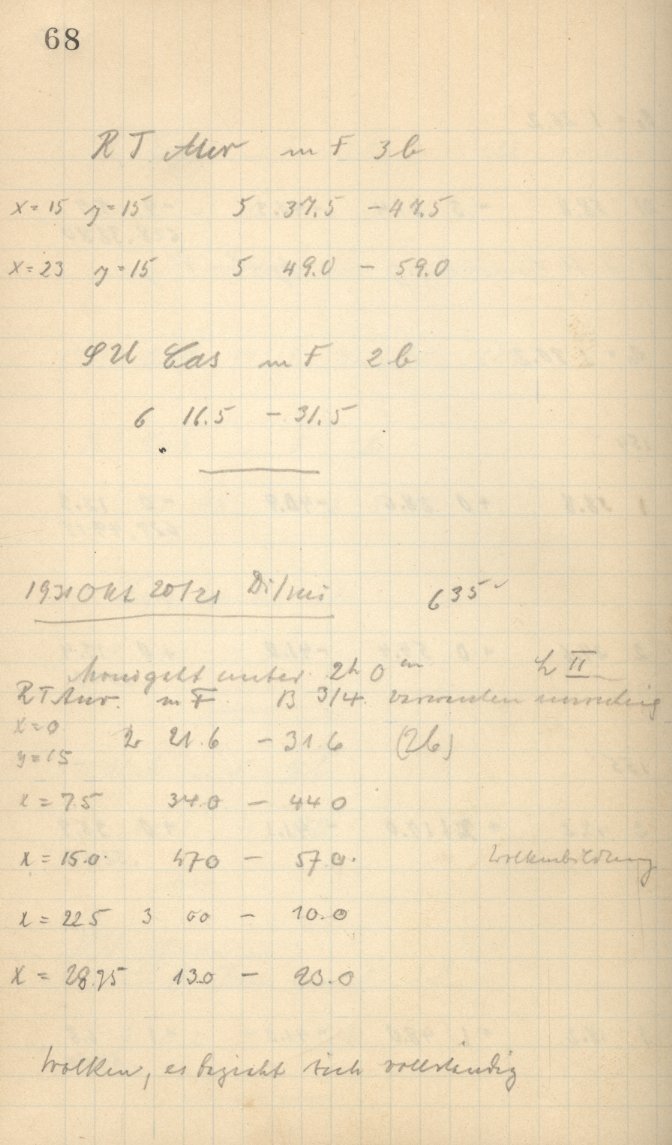 68
RT Aur m F 3b
x=15 y=15 5 37.5 - 47.5
x=23 y=15 5 49.0 - 59.0
SU Cas m F 2b
6 16.5 - 31.5
1931 Okt 20/21 Di/Mi 635
Mond geht unter 2h 0m L II
RT Aur. m F B 3/4 verwenden unruhig
x=0
y=15 2 21.6 - 31.6 (2b)
x=7.5 34.0 - 44.0
x=15.0. 47.0 - 57.0. Wolkenbildung
x=22.5 3 00 - 10.0
x=28.75 13.0 - 23.0
Wolken, es bezieht sich vollständig